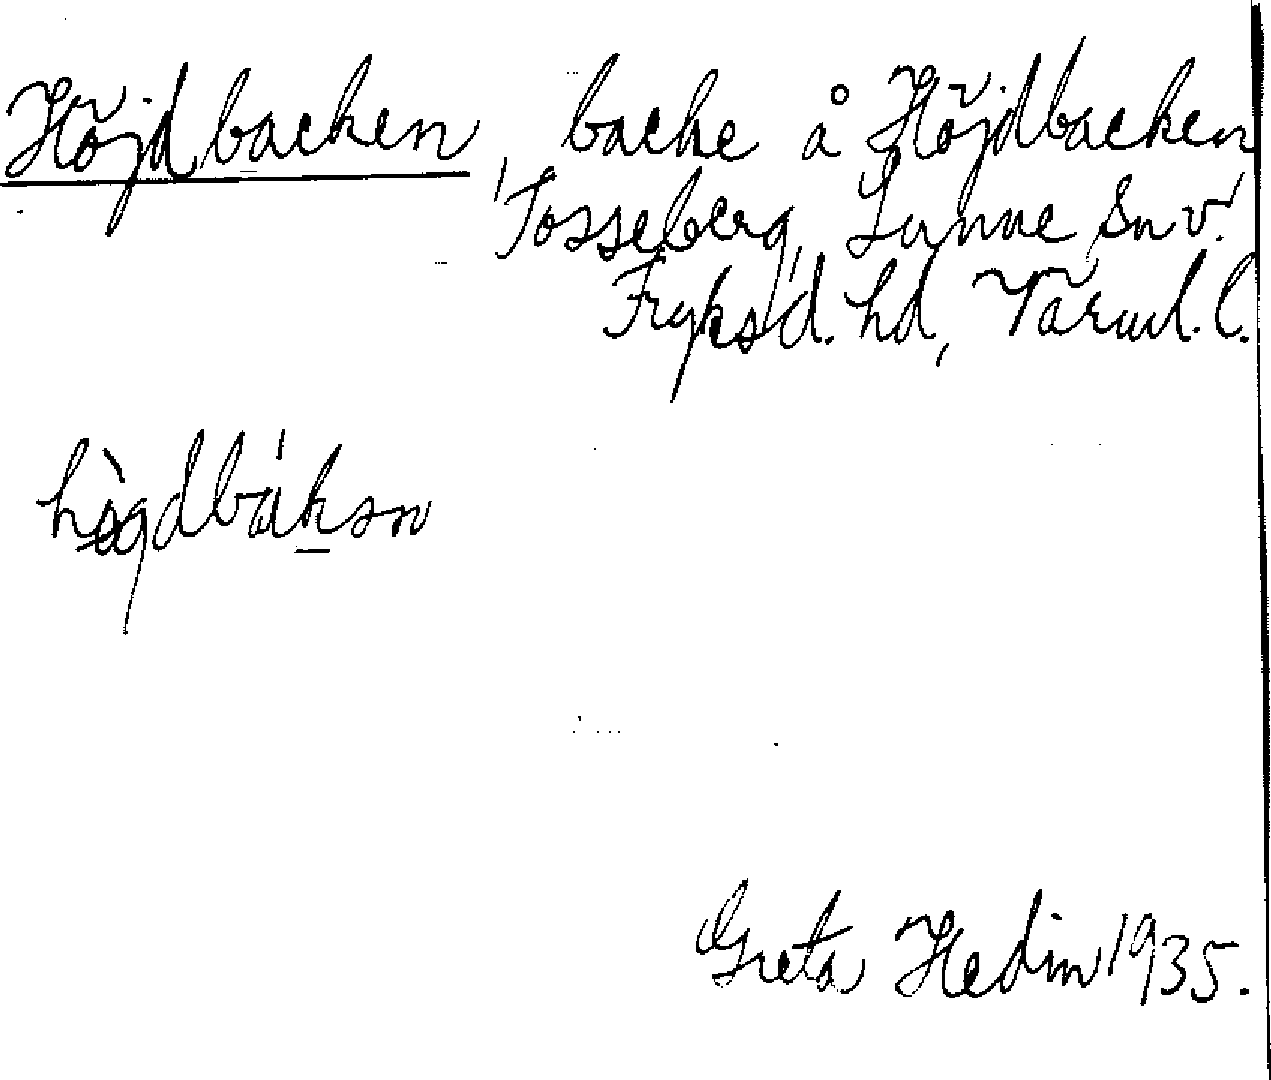 Höjdbacken, backe å Höjdbacken
Tosseberg, Sunne Sn v.
Fryksd. hd, Värml. l.
Greta Hedin 1935.